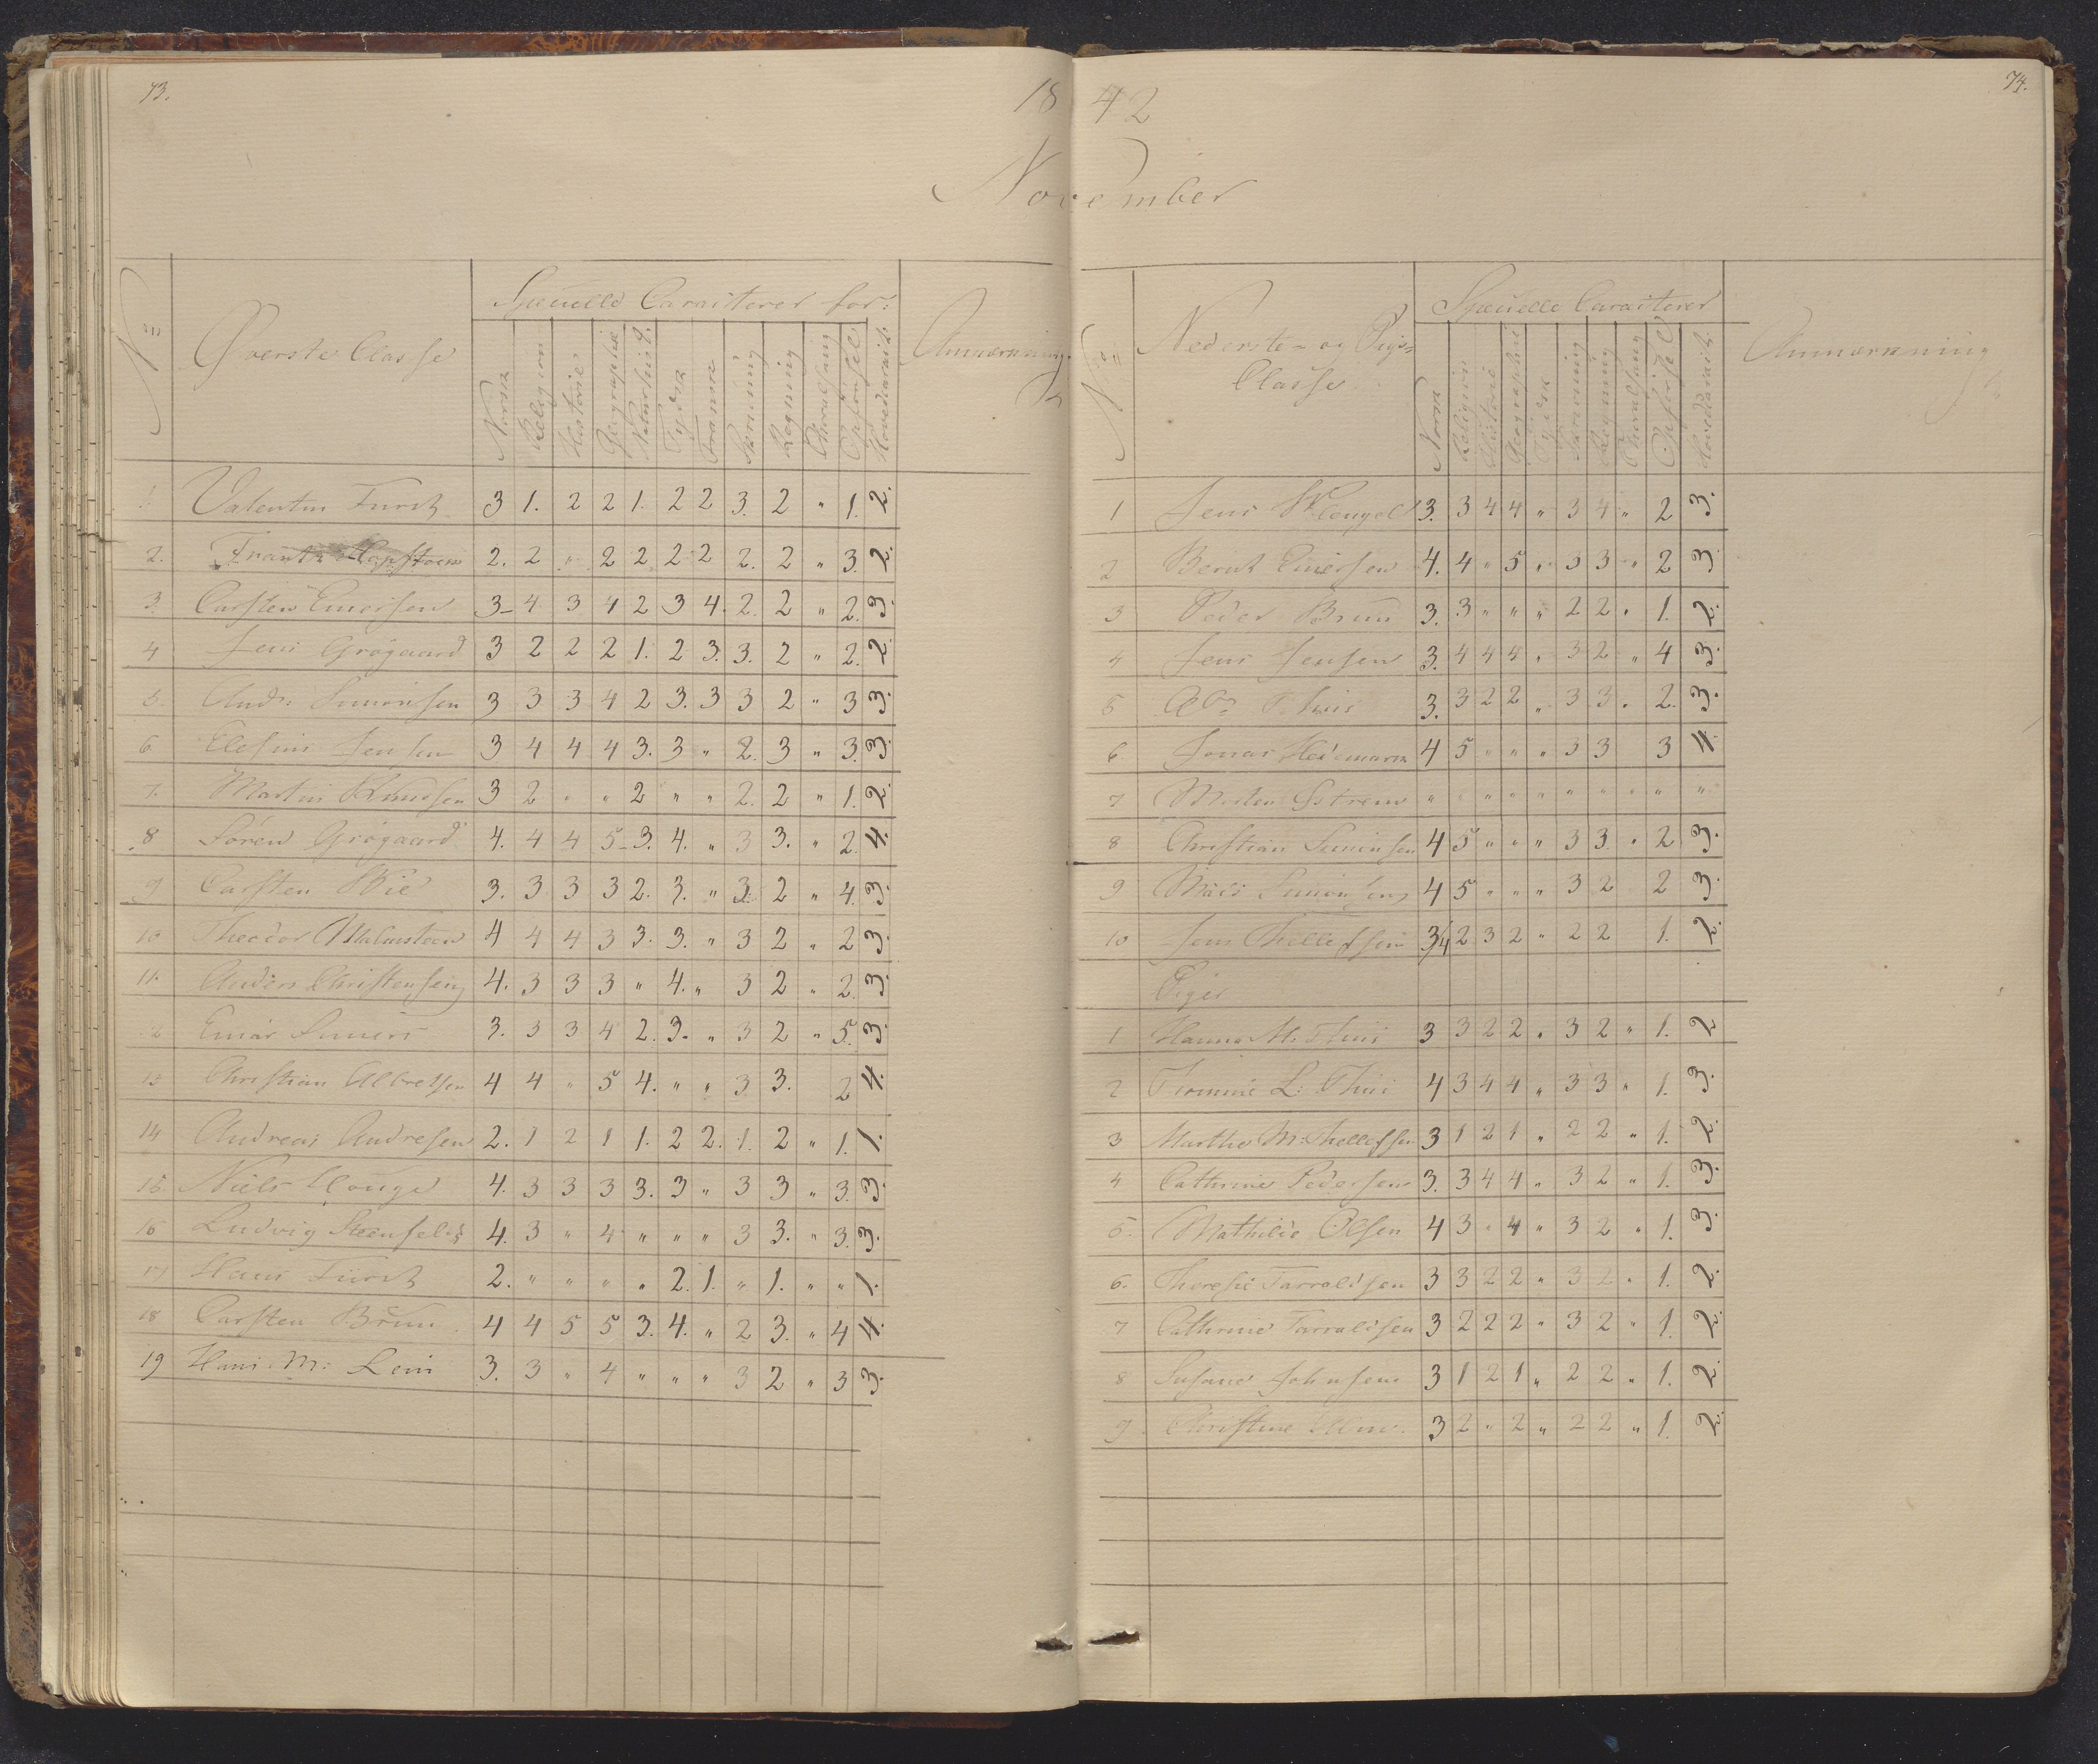 73.
18 42
74.
November
No
Øverste Classe
Specielle Caracterer for:
Anmærkning.
Norsk Religion Historie Geographie Naturhist. Tydsk Franske Skrivning Regning Choralsang Opførsel Hovedcarakt.
1. Valentin Fürst 3 1. 2 2 1. 2 2 3. 2 " 1. 2.
2. Frantz 2. 2 " 2 2 2 2 2. 2 " 3. 2.
3. Carsten Einersen 3 4 3 4 2 3 4. 2. 2 " 2. 3.
4 Jens Grögaard 3 2 2 2 1. 2 3. 3. 2 " 2. 2.
5. And: Simonsen 3 3 3 4 2 3. 3 3 2 " 3 3.
6 Elesius Jensen 3 4 4 4 3. 3 " 2. 3 " 3. 3.
7. Martin Knudsen 3 2 " " 2 " " 2. 2 " 1. 2.
8 Sören Grögaard 4. 4 4 5 3. 4. " 3 3. " 2. 4.
9 Carsten Wie 3. 3 3 3 2. 3. " 3. 2 " 4. 3.
10 Theodor Malmsteen 4 4 4 3 3. 3. " 3 2 " 2 3.
11. Anders Christensen 4. 3 3 3 " 4. " 3 2 " 2. 3.
12 Einar 3. 3 3 4 2. 3. " 3 2 " 5. 3.
13 Christian Albretsen 4 4 " 5 4. " " 3 3. 2 4.
14 Andreas Andresen 2. 1 2 1 1. 2 2. 1. 2 " 1. 1.
15. Niels Houge 4. 3 3 3 3. 3 " 3 3 " 3. 3.
16 Ludvig Steenfeldt 4. 3 " 4 " " " 3 3. " 3. 3.
17 Hans Fürst 2. " " " " 2. 1. " 1. " " 1.
18 Carsten Brun 4 4 5 5 3. 4. " 2 3. " 4 4.
19 Hans M: 3. 3 " 4 " " " 3 2 " 3 3.
No
Nederste- og Pige-
Classe
Specielle Caracterer
Anmærkning
Norsk Religion Historie Geographie Tydsk Skrivning Regning Choralsang Opførsel Hovedcarakt.
1 Jens Klengel 3. 3 4 4 " 3 4 " 2 3.
2 Bernt Einersen 4. 4 " 5 " 3 3 " 2 3
3 Peder Brun 3. 3 " " " 2 2 " 1. 2.
4 Jens Jensen 3. 4 4 4 " 3 2 " 4 3.
5 Thiis 3. 3 2 2 " 3 3 " 2. 3.
6. Jonas Hedemark 4 5 " " " 3 3 3 4.
7 Morten " " " " " " " " "
8 Christian Simonsen 4 5 " " " 3 3 " 2 3.
9 Simonsen 4 5 " " " 3 2 2 3.
10 Jens Thellefsen 3/4 2 3 2 " 2 2 1. 2.
Piger
1 Hanna M: Thiis 3 3 2 2 " 3 2 " 1. 2
2 L: Thiis 4 3 4 4 " 3 3 " 1. 3.
3 Marthe M: Thellefsen 3 1 2 1 " 2 2 " 1. 2.
4 Cathrine Pedersen 3. 3 4 4 " 3 2 " 1. 3.
5. Mathilde Olsen 4 3 " 4 " 3 2 " 1. 3.
6. Theresie Tarraldsen 3 3 2 2 " 3 2 " 1. 2.
7 Cathrine Tarraldsen 3 2 2 2 " 3 2 " 1. 2.
8 Susanne Johnsen 3 1 2 1 " 2 2 " 1. 2.
9 Christine 3 2 " 2 " 2 2 " 1. 2.